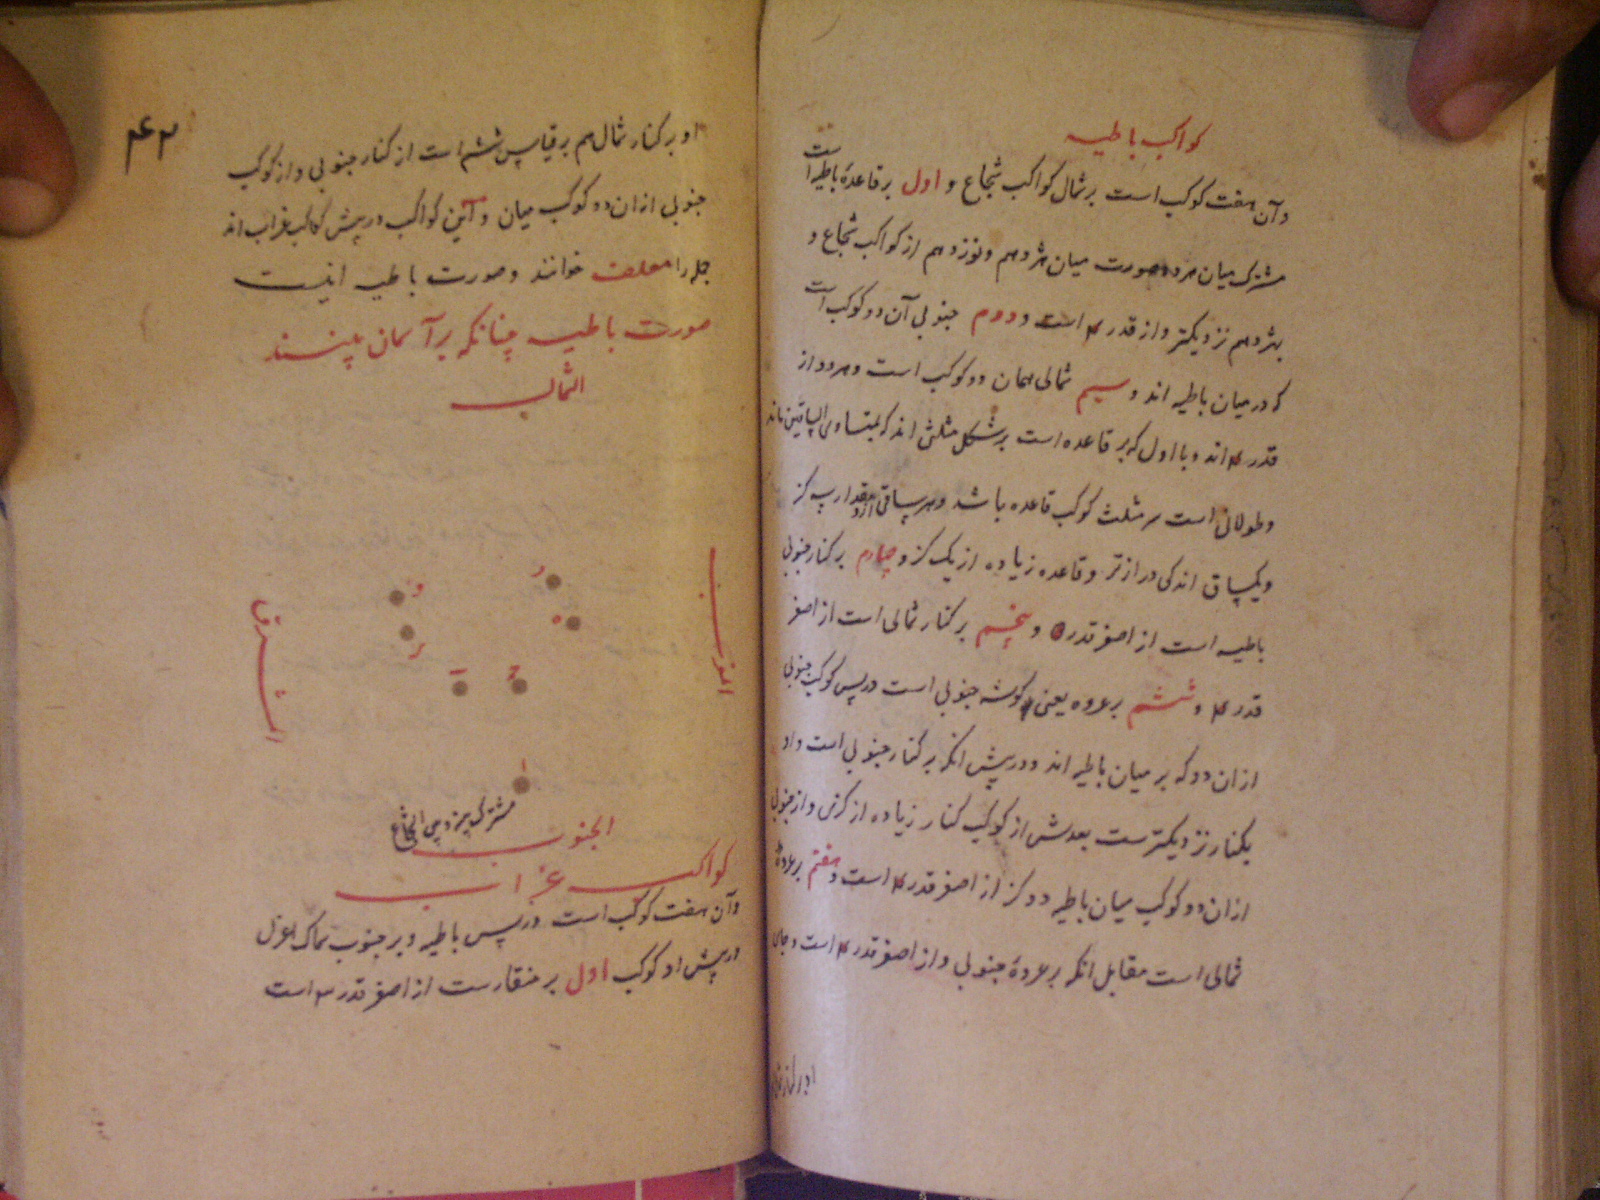 کواکب باطیه
وآن هفت کوکب است بر شمال کواکب شجاع و اول بر قاعدهٔ باطیه است
مشترک میان هر دو صورت میان هژدهم و نوزدهم از کواکب شجاع و
بهژدهم نزدیکتر و از قدر ۴ است و دوم جنوبی آن دو کوکب است
که در میان باطیه اند و سیم شمالی همان دو کوکب است و هر دو از
قدر ۴ اند و با اول که بر قاعده است بر شکل مثلثی اند که بمتساوی الساقین ماند
و طولانی است سر مثلث کوکب قاعده باشد و هر ساقی ازو مقدار سه گز
و یکساق اندکی درازتر و قاعده زیاده از یک گز و چهارم بر کنار جنوبی
باطیه است از اصغر قدر ۵ و پنجم بر کنار شمالی است از اصغر
قدر ۴ و ششم بر عروه یعنی گوشه جنوبی است در پس کوکب جنوبی
ازان دو که بر میان باطیه اند و در پیش آنکه بر کنار جنوبی است و او
بکنار نزدیکترست بعدش از کوکب کنار زیاده از گزی و از جنوبی
ازان دو کوکب میان باطیه دو گز از اصغر قدر ۴ است و هفتم بر عروهٔ
شمالی است مقابل آنکه بر عروهٔ جنوبی و از اصغر قدر ۴ است و جای
او بر کنار
۴۲
او بر کنار شمال هم بر قیاس ششم است از کنار جنوبی و از کوکب
جنوبی ازان دو کوکب میان و این کواکب در پیش کواکب غراب اند
جمله را معلف خوانند و صورت باطیه اینست
صورت باطیه چنانکه بر آسمان بینند
الشمال
المغرب
المشرق
و
ر
ه
ز
ب
ج
ا
مشترک بینه و بین الشجاع
الجنوب
کواکب غراب
وآن هفت کوکب است در پس باطیه و بر جنوب سماک اعزل
در پیش او کوکب اول بر منقارست از اصغر قدر ۳ است